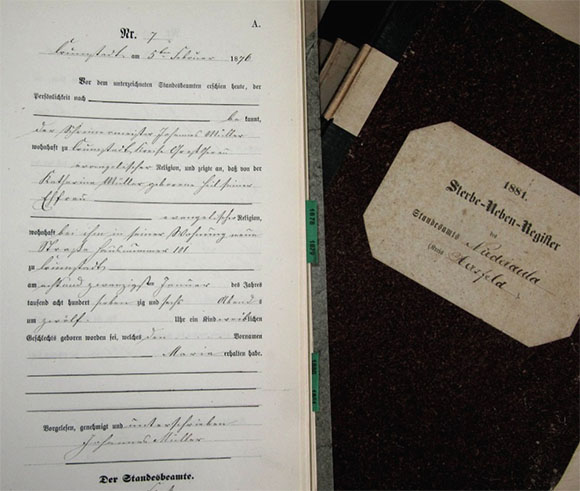 A.
Nr. 7
Crumstadt am 5ten Februar 1876
Vor dem unterzeichneten Standesbeamten erschien heute, der
Persönlichkeit nach
be kannt,
der Schreinermeister Johannes Müller
wohnhaft zu Crumstadt, Kreise
evangelischer Religion, und zeigte an, daß von der
Katharine Müller geborene seiner
Ehefrau
evangelischer Religion,
wohnhaft bei ihm in seiner Wohnung neue
Straße Hausnummer 111
zu Crumstadt
am Januar des Jahres
tausend acht hundert sieben zig und sechs Abends
um zwölf Uhr ein Kind weiblichen
Geschlechts geboren worden sei, welches den Vornamen
Marie erhalten habe.
Vorgelesen, genehmigt und unterschrieben
Johannes Müller
Der Standesbeamte.
1878
1879
1881.
Sterbe-Neben-Register
des
Standesamts Niederaula
Kreis Hersfeld